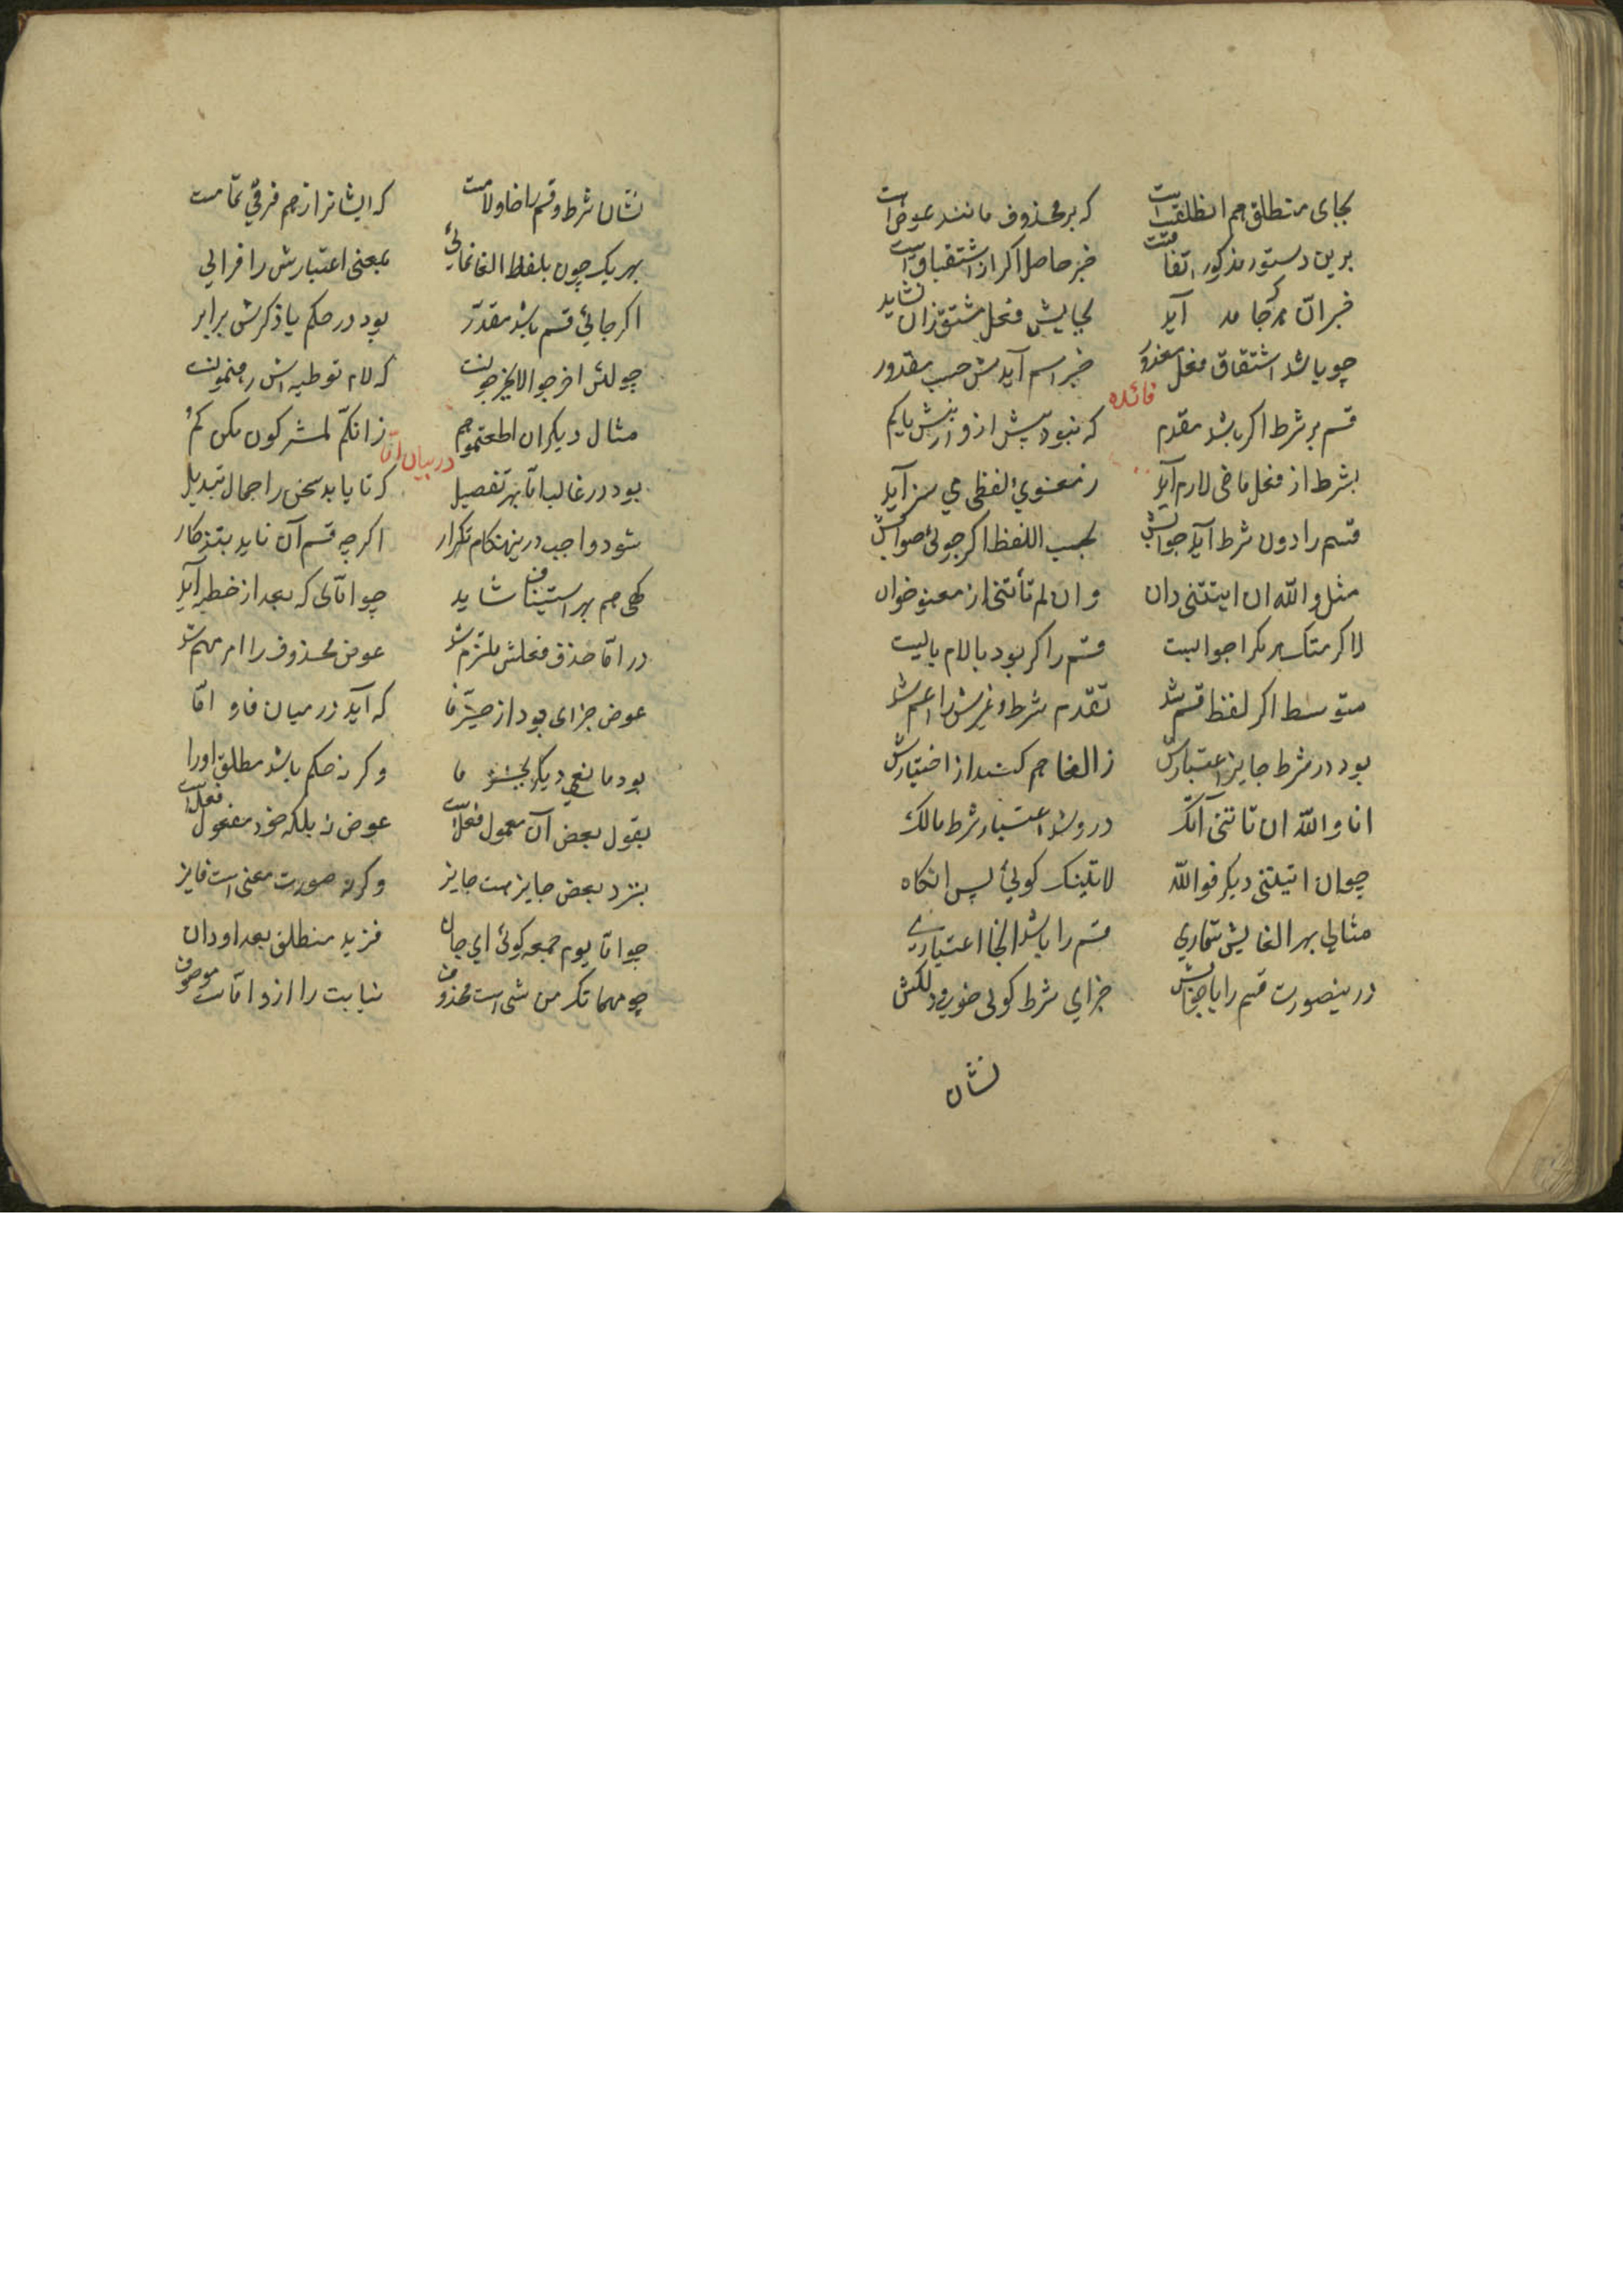 بجای منطلق هم انطلقت است که بر محذوف مانند عوض است
برین دستور مذکور اتفاقست خبر حاصل اگر از اشتقاق است
خبر ان گر جامد آید بجایش فعل مشتق زان نشاید
چو باشد اشتقاق فعل معذور خبر اسم آیدش حسب مقدور
فائده
قسم بر شرط اگر باشد مقدم که نبود پیش ازو
بشرط از فعل ماضی لازم آید ز معنوی لفظی می سز آید
قسم را دون شرط آید جوابش بحسب اللفظ اگر جوئی صوابش
مثل والله ان ایتتنی دان و ان لم تأتنی از معنو خوان
لا کرمتک جوابست قسم را گر بود بالام بالیت
متوسط اگر لفظ قسم شد تقدم شرط و غیرش را اعم شد
بود در شرط جایز اعتبارش ز الغا هم کشد از اختیارش
انا والله ان تاتنی آتک در و شد اعتبار شرط مالک
چو ان اتیتنی دیگر فوالله لاتینک گوئی پس انگاه
مثالی بهر الغایش شماری قسم را باشد انجا اعتباری
درینصورت قسم را با جوابش جزای شرط گوئی
نشان
نشان شرط و قسم که ایشانرا از هم فرقی تمامست
بهریک چون بلفظ الغا نمائی بمعنی اعتبارش را فزائی
اگر جائی قسم باشد مقدر بود در حکم با ذکرش برابر
چو لئن اخرجوا لایخرجونست که لام توطیه اش رهنمونست
مثال دیگر ان اطعتموهم ز انکم لمشرکون مکن گم
در بیان اما
بود در غالب اما بهر تفصیل که تا یابد سخن را اجمال تبدیل
شود واجب درینهنگام تکرار اگرچه قسم آن ناید بتذکار
گهی هم بهر استیناف شاید چو امائی که بعد از خطبه آید
در اما حذف فعلش ملتزم شد عوض محذوف را امر مهم شد
عوض جزای بود از حیز فا که آید در میان فا و اما
بود مانعی دیگر بجز فا وگرنه حکم باشد مطلق او را
بقول بعض آن معمول فعل است عوض نه بلکه خود مفعول فعل است
بنزد بعض جایز هست جایز وگرنه صورت معنی است فایز
چو اما یوم جمعه گوئی ای جان فزید منطلق بعد او دان
چو مهما تکن من شی است محذوف نیابت را ازو اماست موصوف